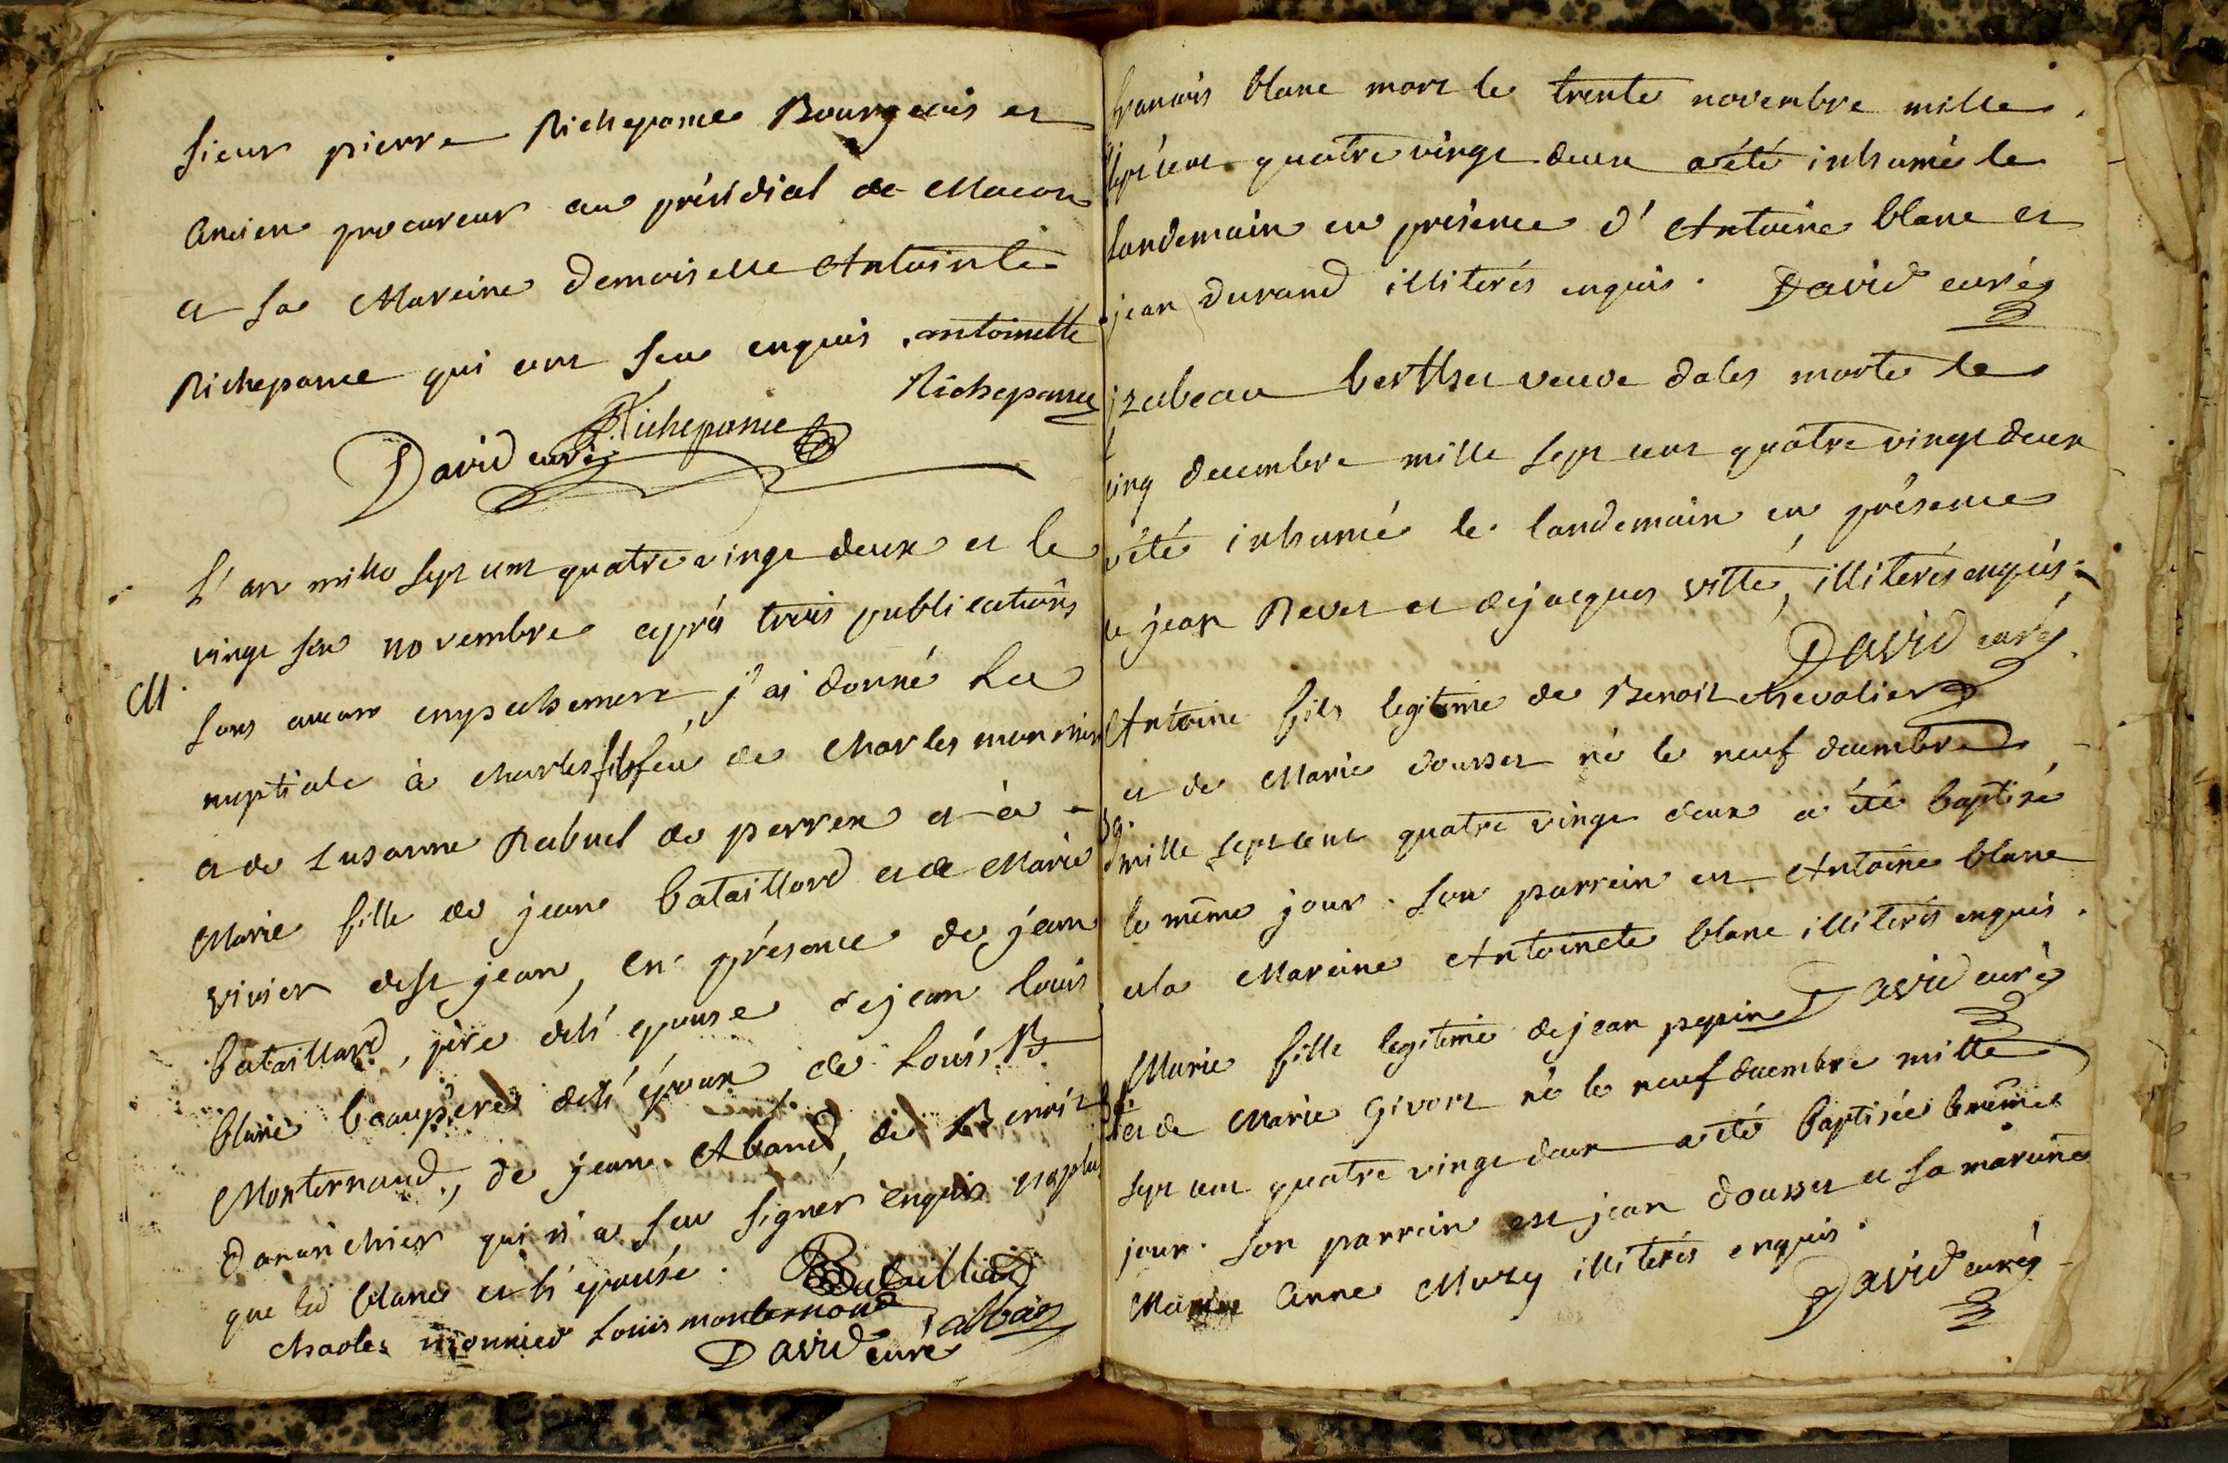 sieur pierre Richepance Bourgeois et
ancien procureur au présidial de Macon
et sa Mareine demoiselle Antointe
Richepance qui ont seu enquis . antoinette
Richepance
Richepance
David curé
L'an mille sept cent quatre vingt deux et le
vingt six novembre après trois publications
M. sans aucun empechement j'ai donné La
nuptiale à charles fils feu de Charles monnier
et de Susanne Rabuel de perrex et à
Marie fille de jean bataillard et de Marie
vivier de st jean, en présence de jean
bataillard, père de lé epouse de jean louis
blanc beaupère de lé époux de Louis B
Monternaud, de jean Aband, de Benoit
Dananchier qui n'a seu signer enquis non plus
que led blanc et lé épouse .
Bataillard
charles monnier Louis monternoud
abbas
David curé
francois blanc mort le trente novembre mille
sept cent quatre vingt deux a été inhumé le
landemain en présence d'Antoine blanc et
jean Durand illiterés enquis . David curé
izabeau berthet veuve dales morte le
cinq decembre mille sept cent quatre vingt deux
a été inhumé le landemain en présence
de jean Revet et de jacques vitté, illiterés enquis .
David curé
Antoine fils legitime de Benoit chevalier
et de Marie dousset né le neuf decembre
mille sept cent quatre vingt deux a été baptisé
le même jour . son parrein est Antoine blanc
et la Mareine Antoinete blanc illiterés enquis .
David curé
Marie fille legitime de jean pepin
et de Marie Givort né le neuf decembre mille
sept cent quatre vingt deux a été baptisée le même
jour . son parrein est jean dousset et sa mareine
Marie anne Muzy illiterés enquis .
David curé